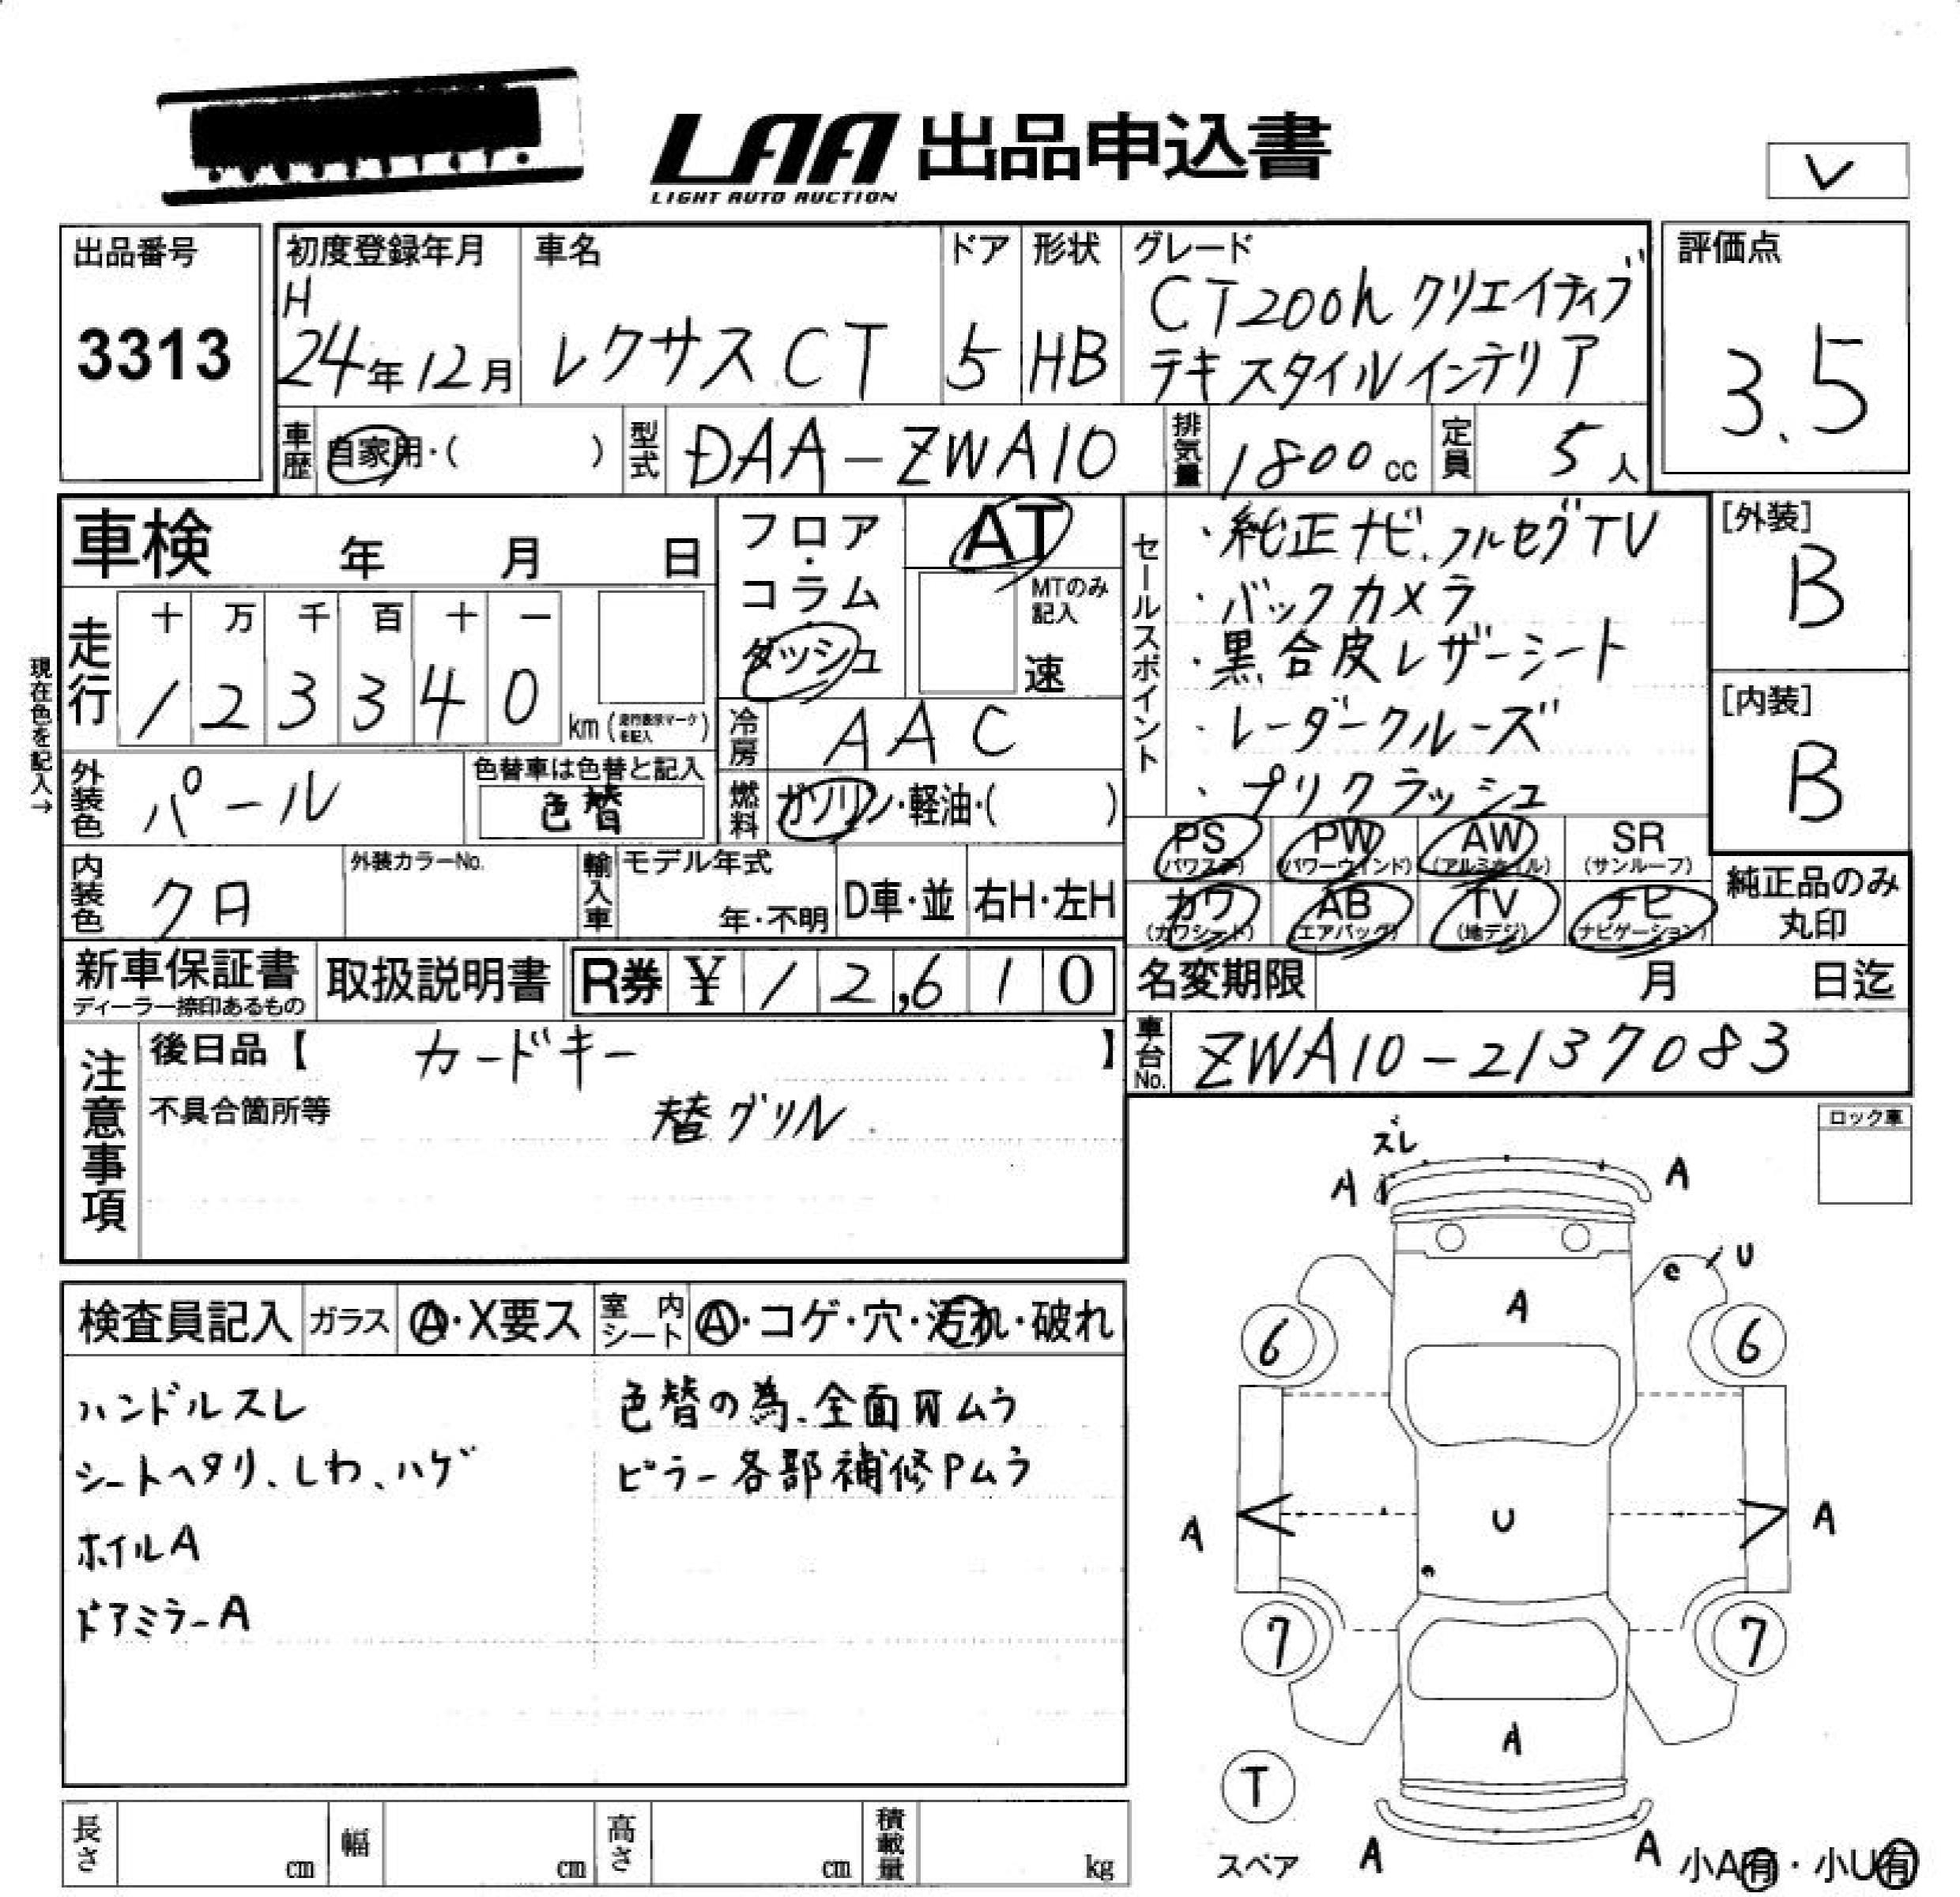 LAA 出品申込書
LIGHT AUTO AUCTION
レ
出品番号
3313
初度登録年月
H
24年12月
車名
レクサスCT
ドア
5
形状
HB
グレード
CT200h クリエイティブ
テキスタイルインテリア
評価点
3.5
車歴
自家用・( )
型式
DAA-ZWA10
排気量
1800cc
定員
5人
車検 年 月 日
フロア・コラム
ダッシュ
AT
MTのみ記入
速
現在色を記入→
走行
十 万 千 百 十 一
1 2 3 3 4 0 km (走行表示マークを記入)
冷房
AAC
セールスポイント
・純正ナビ、フルセグTV
・バックカメラ
・黒合皮レザーシート
・レーダークルーズ
・プリクラッシュ
[外装]
B
[内装]
B
外装色
パール
色替車は色替と記入
色替
燃料
ガソリン・軽油・( )
内装色
クロ
外装カラーNo.
輸入車
モデル年式
年・不明
D車・並
右H・左H
PS (パワステ)
PW (パワーウインド)
AW (アルミホイル)
SR (サンルーフ)
カワ (カワシート)
AB (エアバッグ)
TV (地デジ)
ナビ (ナビゲーション)
純正品のみ
丸印
新車保証書
ディーラー捺印あるもの
取扱説明書
R券 ¥12,610
名変期限 月 日迄
車台No.
ZWA10-2137083
注意事項
後日品【 カードキー 】
不具合箇所等
替グリル
ロック車
ズレ
A A
e U
A
6 6
A U A
7 7
A
T
スペア
A A
小A有・小U有
検査員記入
ガラス
A・X要ス
室内シート
A・コゲ・穴・汚れ・破れ
ハンドルスレ
シートヘタリ、しわ、ハゲ
ホイルA
ドアミラーA
色替の為、全面Wムラ
ピラー各部補修Pムラ
長さ cm
幅 cm
高さ cm
積載量 kg